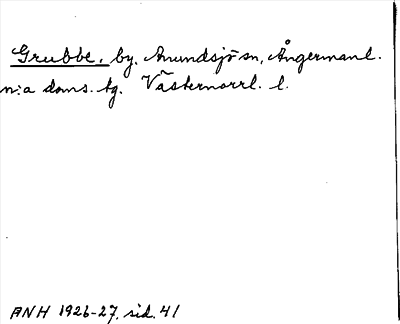 Grubbe, by. Anundsjö sn, Ångermanl.
n:a doms. tg. Västernorrl. l.
ANH 1926-27, sid. 41